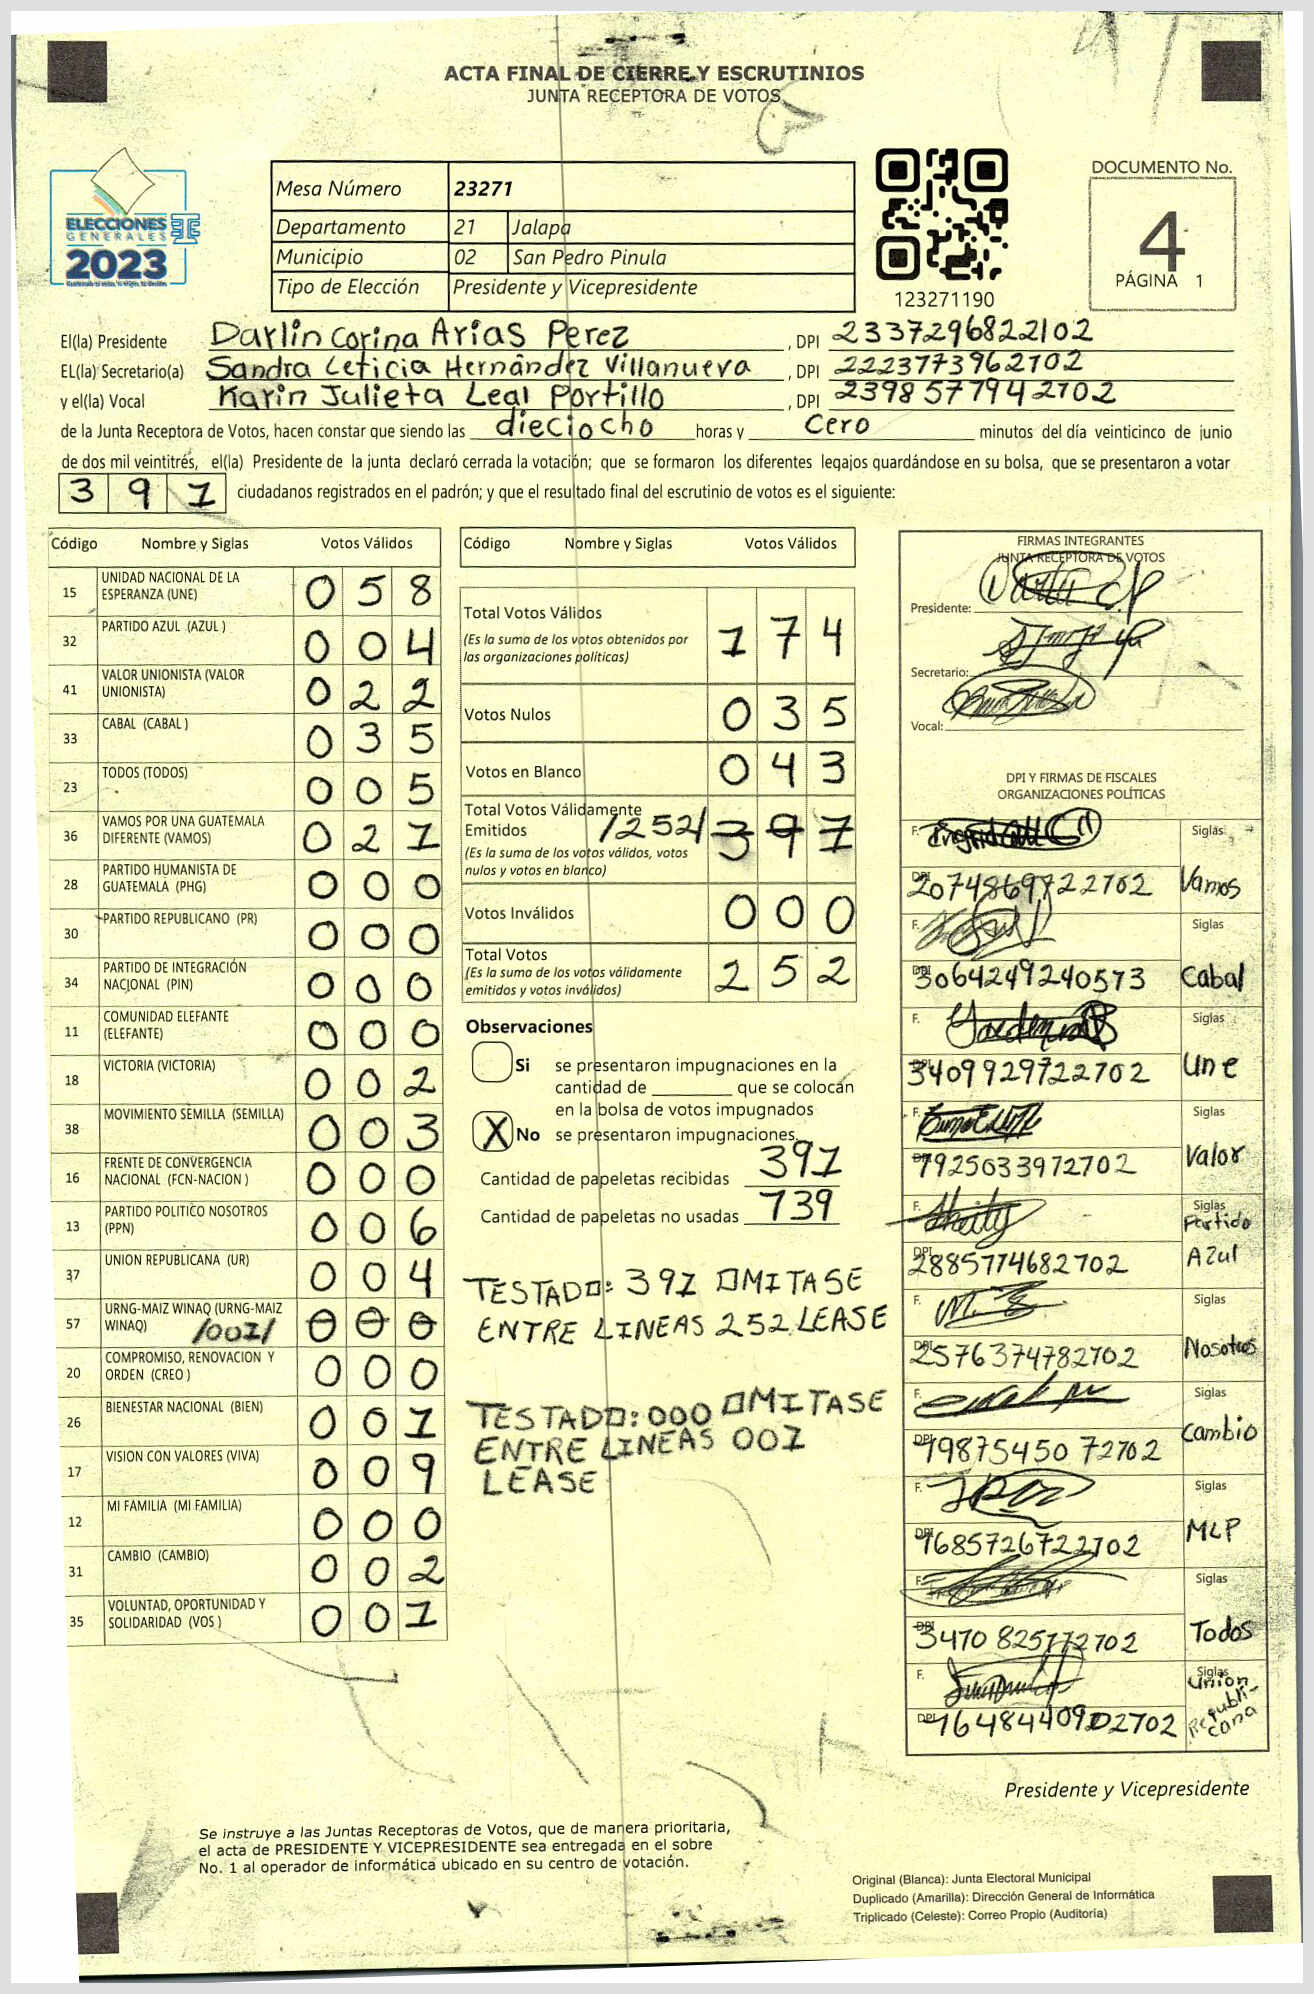 ACTA FINAL DE CIERRE Y ESCRUTINIOS
JUNTA RECEPTORA DE VOTOS
ELECCIONES
GENERALES
2023
Mesa Número 23271
Departamento 21 Jalapa
Municipio 02 San Pedro Pinula
Tipo de Elección Presidente y Vicepresidente
123271190
DOCUMENTO No.
4
PÁGINA 1
El(la) Presidente Darlin Corina Arias Perez, DPI 2337296822102
EL(la) Secretario(a) Sandra Leticia Hernández Villanueva, DPI 2223773962102
y el(la) Vocal Karin Julieta Leal Portillo, DPI 2398577942102
de la Junta Receptora de Votos, hacen constar que siendo las dieciocho horas y Cero minutos del día veinticinco de junio
de dos mil veintitrés, el(la) Presidente de la junta declaró cerrada la votación; que se formaron los diferentes legajos guardándose en su bolsa, que se presentaron a votar
391 ciudadanos registrados en el padrón; y que el resultado final del escrutinio de votos es el siguiente:
Código Nombre y Siglas Votos Válidos
15 UNIDAD NACIONAL DE LA ESPERANZA (UNE) 058
32 PARTIDO AZUL (AZUL ) 004
41 VALOR UNIONISTA (VALOR UNIONISTA) 022
33 CABAL (CABAL ) 035
23 TODOS (TODOS) 005
36 VAMOS POR UNA GUATEMALA DIFERENTE (VAMOS) 021
28 PARTIDO HUMANISTA DE GUATEMALA (PHG) 000
30 PARTIDO REPUBLICANO (PR) 000
34 PARTIDO DE INTEGRACIÓN NACIONAL (PIN) 000
11 COMUNIDAD ELEFANTE (ELEFANTE) 000
18 VICTORIA (VICTORIA) 002
38 MOVIMIENTO SEMILLA (SEMILLA) 003
16 FRENTE DE CONVERGENCIA NACIONAL (FCN-NACION ) 000
13 PARTIDO POLITICO NOSOTROS (PPN) 006
37 UNION REPUBLICANA (UR) 004
57 URNG-MAIZ WINAQ (URNG-MAIZ WINAQ) /001/ 000
20 COMPROMISO, RENOVACION Y ORDEN (CREO ) 000
26 BIENESTAR NACIONAL (BIEN) 001
17 VISION CON VALORES (VIVA) 009
12 MI FAMILIA (MI FAMILIA) 000
31 CAMBIO (CAMBIO) 002
35 VOLUNTAD, OPORTUNIDAD Y SOLIDARIDAD (VOS ) 001
Código Nombre y Siglas Votos Válidos
Total Votos Válidos 174
(Es la suma de los votos obtenidos por
las organizaciones políticas)
Votos Nulos 035
Votos en Blanco 043
Total Votos Válidamente
Emitidos /252/ 391
(Es la suma de los votos válidos, votos
nulos y votos en blanco)
Votos Inválidos 000
Total Votos 252
(Es la suma de los votos válidamente
emitidos y votos inválidos)
Observaciones
Si se presentaron impugnaciones en la
cantidad de que se colocan
en la bolsa de votos impugnados
X No se presentaron impugnaciones.
Cantidad de papeletas recibidas 391
Cantidad de papeletas no usadas 739
TESTADO: 391 OMITASE
ENTRE LINEAS 252 LEASE
TESTADO: 000 OMITASE
ENTRE LINEAS 001
LEASE
FIRMAS INTEGRANTES
JUNTA RECEPTORA DE VOTOS
Presidente:
Secretario:
Vocal:
DPI Y FIRMAS DE FISCALES
ORGANIZACIONES POLÍTICAS
F. Siglas
DPI 2074869722102 Vamos
F. Siglas
DPI 3064249240573 Cabal
F. Siglas
DPI 3409929722102 Une
F. Siglas
DPI 1925033972102 Valor
F. Siglas
Partido
DPI 2885774682102 Azul
F. Siglas
DPI 2576374782102 Nosotros
F. Siglas
DPI 1987545072102 Cambio
F. Siglas
DPI 1685726722102 MLP
F. Siglas
DPI 3470825772102 Todos
F. Siglas
Union
DPI Republicana
Presidente y Vicepresidente
Se instruye a las Juntas Receptoras de Votos, que de manera prioritaria,
el acta de PRESIDENTE Y VICEPRESIDENTE sea entregada en el sobre
No. 1 al operador de informática ubicado en su centro de votación.
Original (Blanca): Junta Electoral Municipal
Duplicado (Amarilla): Dirección General de Informática
Triplicado (Celeste): Correo Propio (Auditoría)